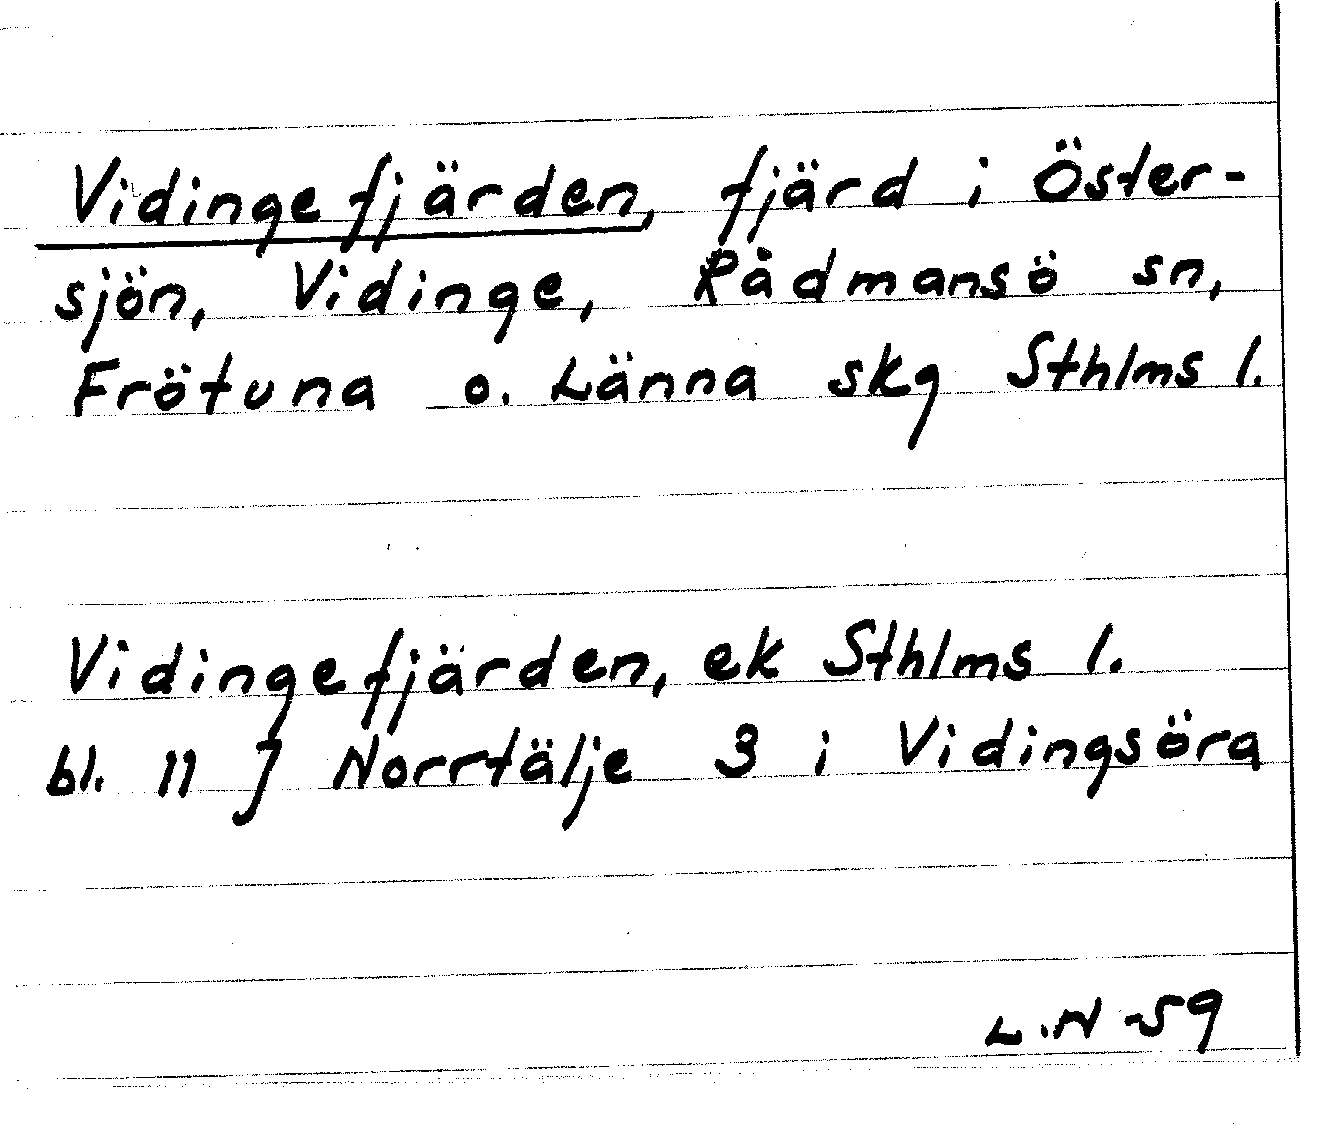 Vidingefjärden, fjärd i Öster-
sjön, Vidinge, Rådmansö sn,
Frötuna o. Länna skg Sthlms l.
Vidingefjärden, ek Sthlms l.
bl. 11 J Norrtälje 3 i Vidingsöra
L.N -59